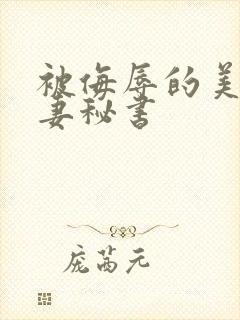 被侮辱的美
妻秘书
庞茜元